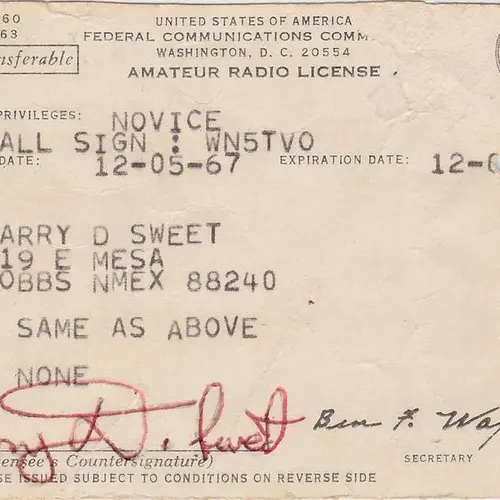 60
UNITED STATES OF AMERICA
63
FEDERAL COMMUNICATIONS COMM
nsferable
WASHINGTON, D. C. 20554
AMATEUR RADIO LICENSE
PRIVILEGES: NOVICE
ALL SIGN : WN5TVO
DATE: 12-05-67 EXPIRATION DATE: 12-
ARRY D SWEET
19 E MESA
OBBS NMEX 88240
SAME AS ABOVE
NONE
ry D. Sweet Ben F. Wa
ensee's Countersignature) SECRETARY
SE ISSUED SUBJECT TO CONDITIONS ON REVERSE SIDE